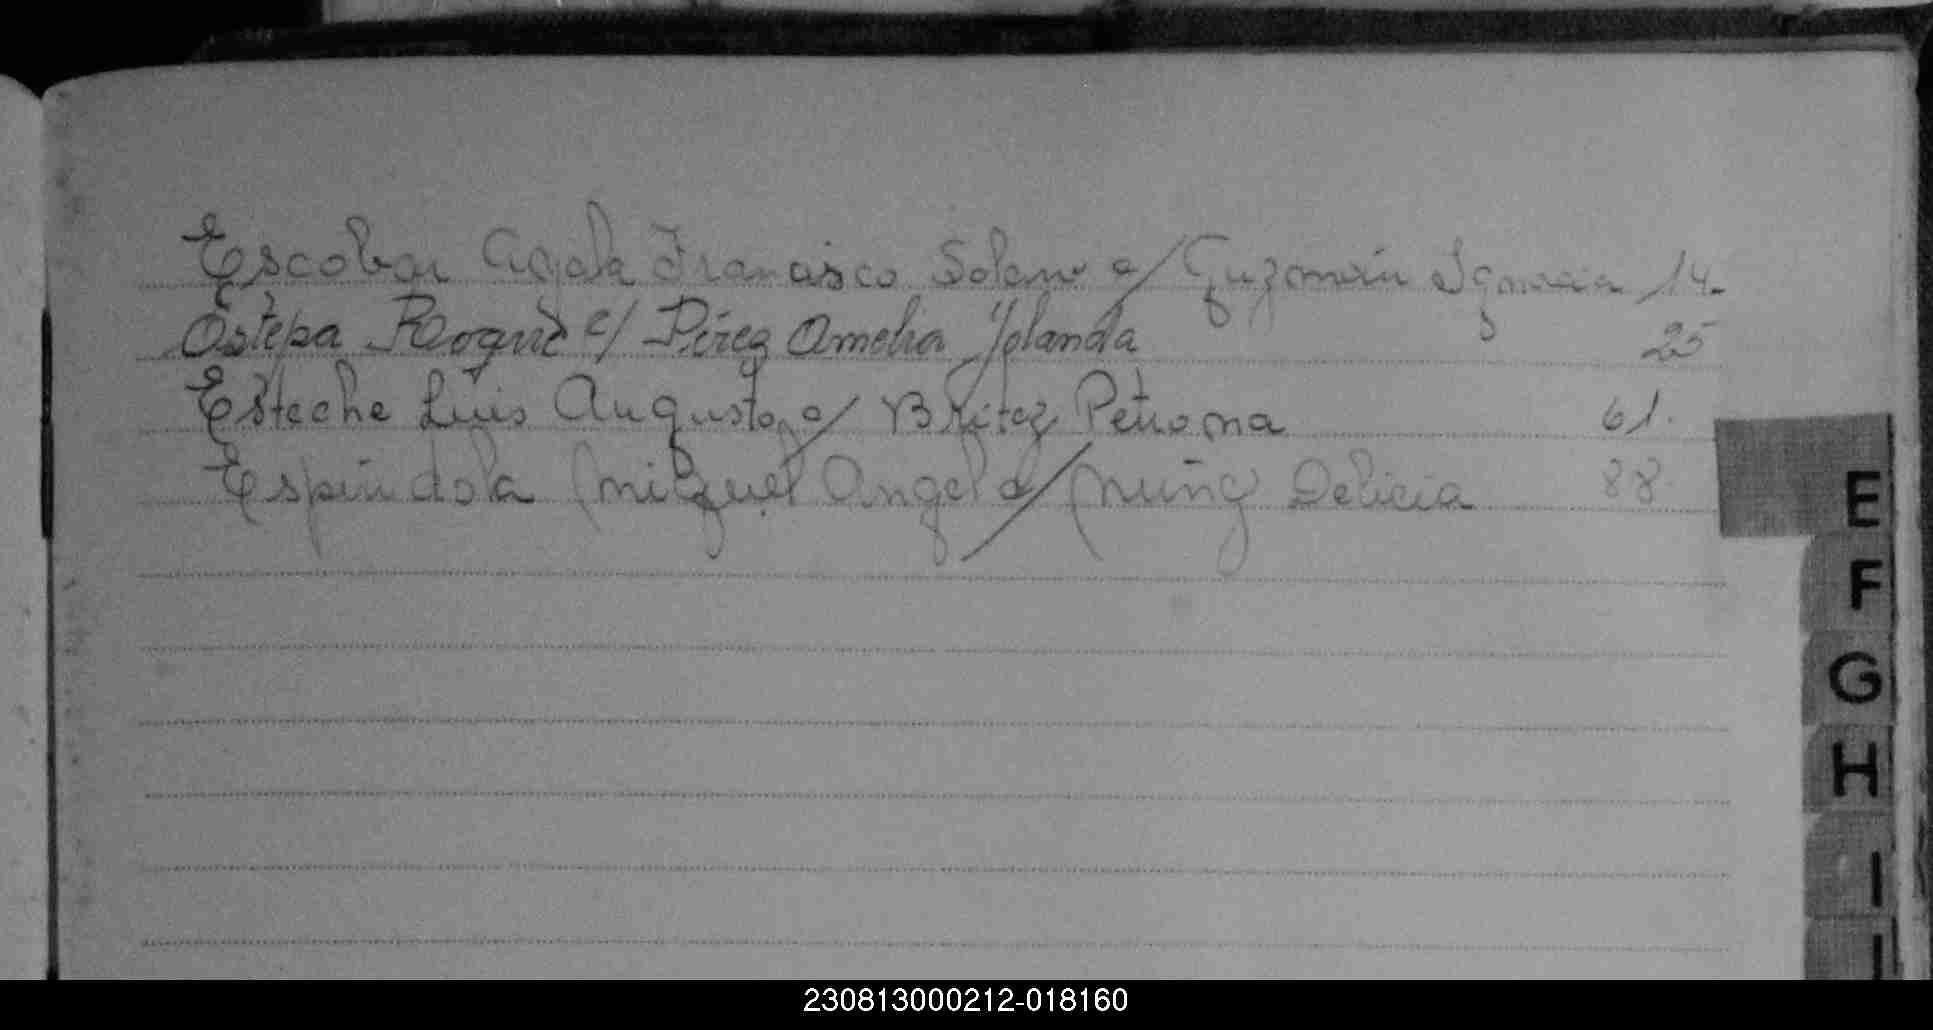 Escobar Ayala Francisco Solano c/ Guzmán Ignacia 14.
Estepa Roque c/ Pérez Amelia Yolanda 25
Esteche Luis Augusto c/ Britez Petrona 61.
Espíndola Miguel Angel c/ Muñoz Delicia 88.
E
F
G
H
I
230813000212-018160